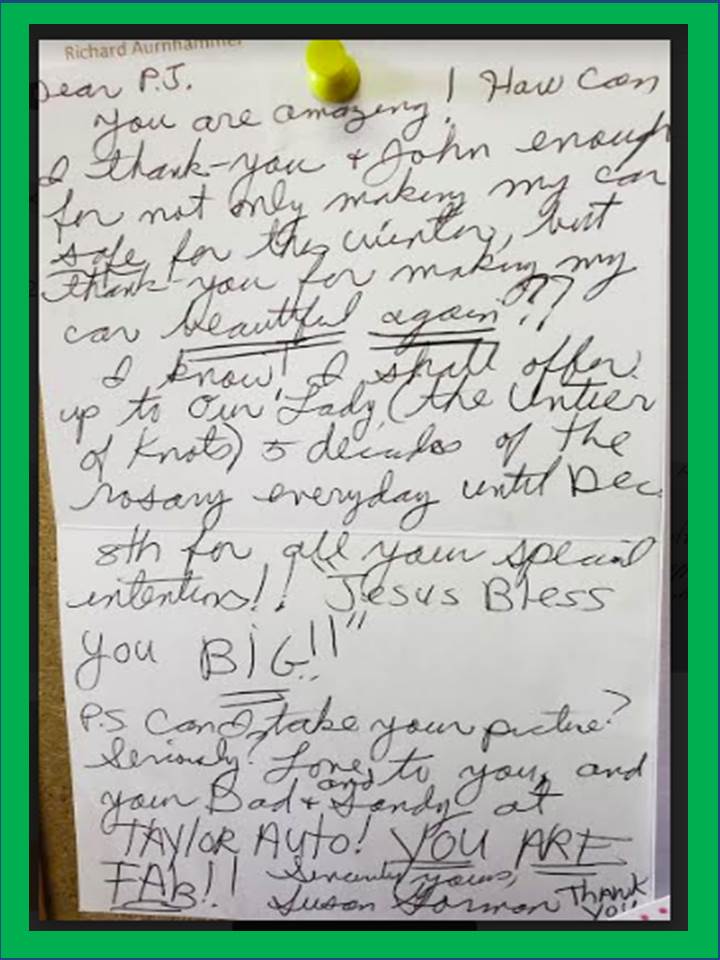 Richard Aurnhammer
Dear P.J.
You are amazing! How can
I thank-you & John enough
for not only making my car
safe for this winter, but
thank-you for making my
car beautiful again??
I know! I shall offer
up to Our Lady, (the Untier
of Knots) 5 decades of the
rosary everyday until Dec.
8th for all your special
intentions!! "Jesus Bless
you BIG!!"
P.S Can I take your picture?
Seriously? Love to you, and
your Dad & and Sandy at
TAYlOR AUTO! YOU ARE
FAB!! Sincerely yours,
Susan Gorman THANK
YOU